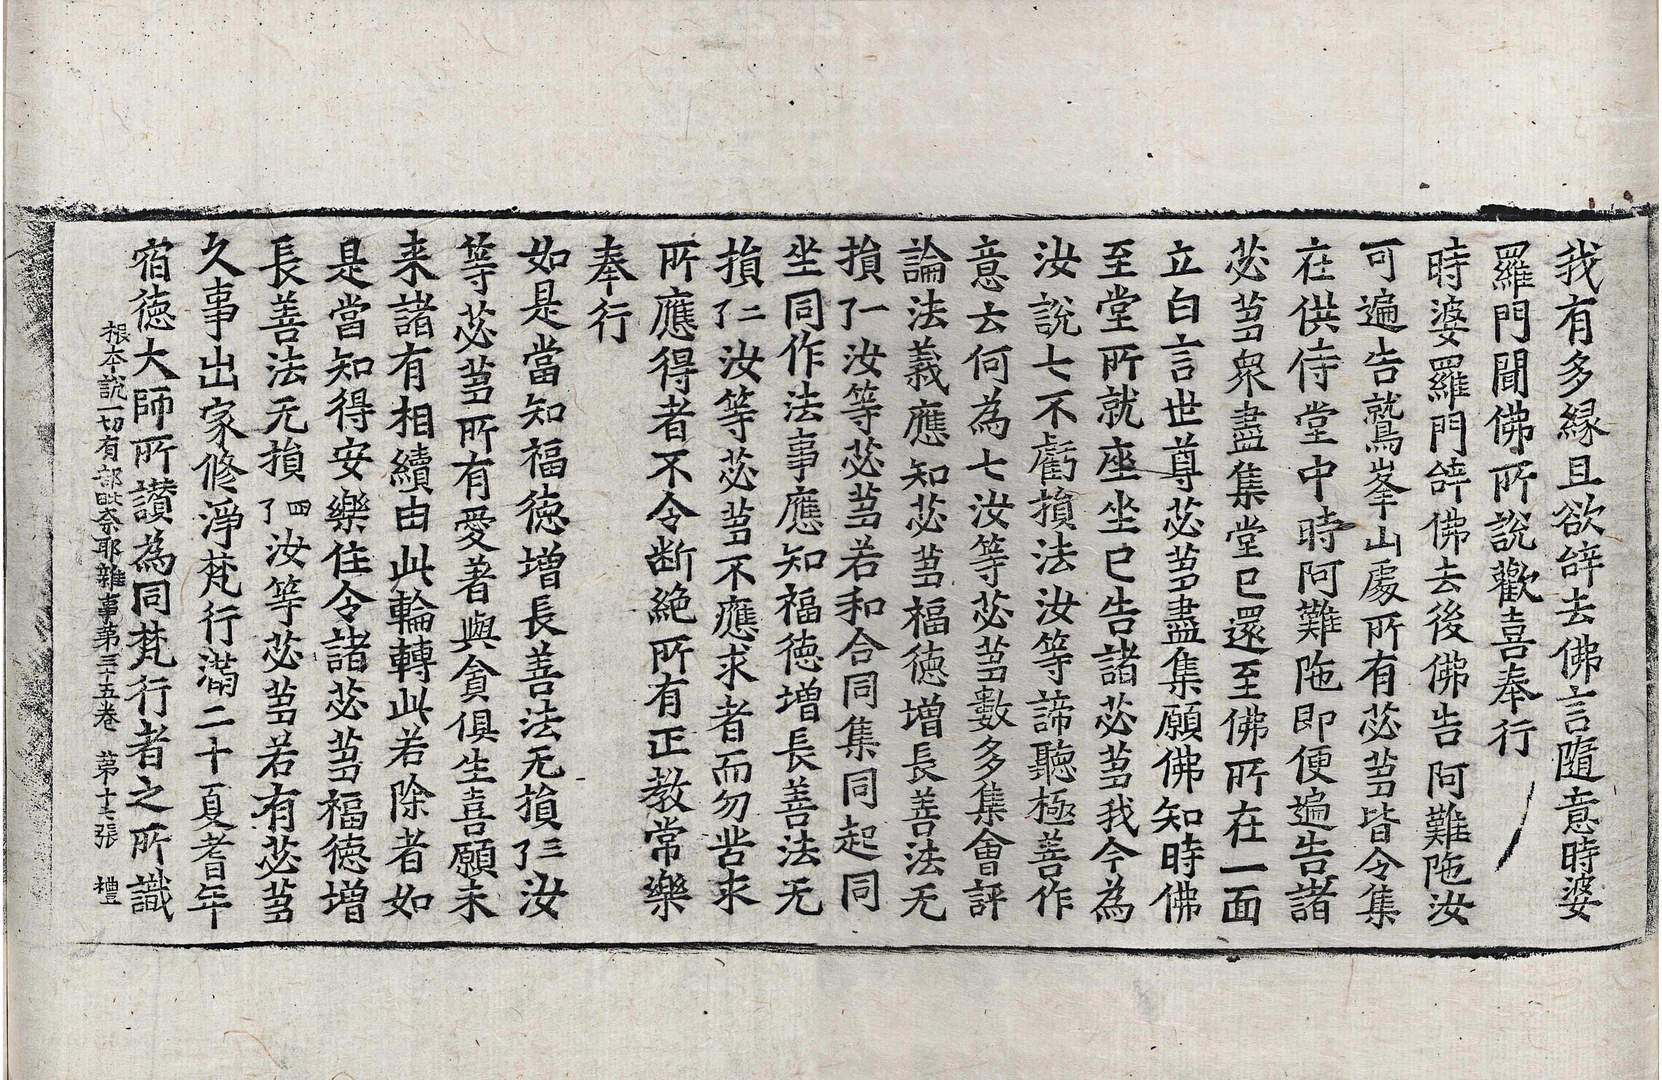 我有多縁且欲辝去佛言隨意時婆
羅門聞佛所說歡喜奉行
時婆羅門辝佛去後佛告阿難陁汝
可遍告鷲峯山處所有苾芻皆令集
在供侍堂中時阿難陁即便遍告諸
苾芻衆盡集堂已還至佛所在一面
立白言世尊苾芻盡集願佛知時佛
至堂所就座坐已告諸苾芻我今為
汝說七不虧損法汝等諦聽極善作
意去何為七汝等苾芻數多集會評
論法義應知苾芻福徳增長善法无
損了一汝等苾芻若和合同集同起同
坐同作法事應知福徳增長善法无
損了二汝等苾芻不應求者而勿甞求
所應得者不令断絶所有正教常樂
奉行
如是當知福徳增長善法无損了三汝
等苾芻所有愛著與貪俱生喜願未
来諸有相續由此輪轉此若除者如
是當知得安樂住令諸苾芻福徳增
長善法无損了四汝等苾芻若有苾芻
久事出家修淨梵行滿二十夏耆年
宿徳大師所讃為同梵行者之所識
根本說一切有部毗奈耶雜事第三十五卷 第十七張 禮